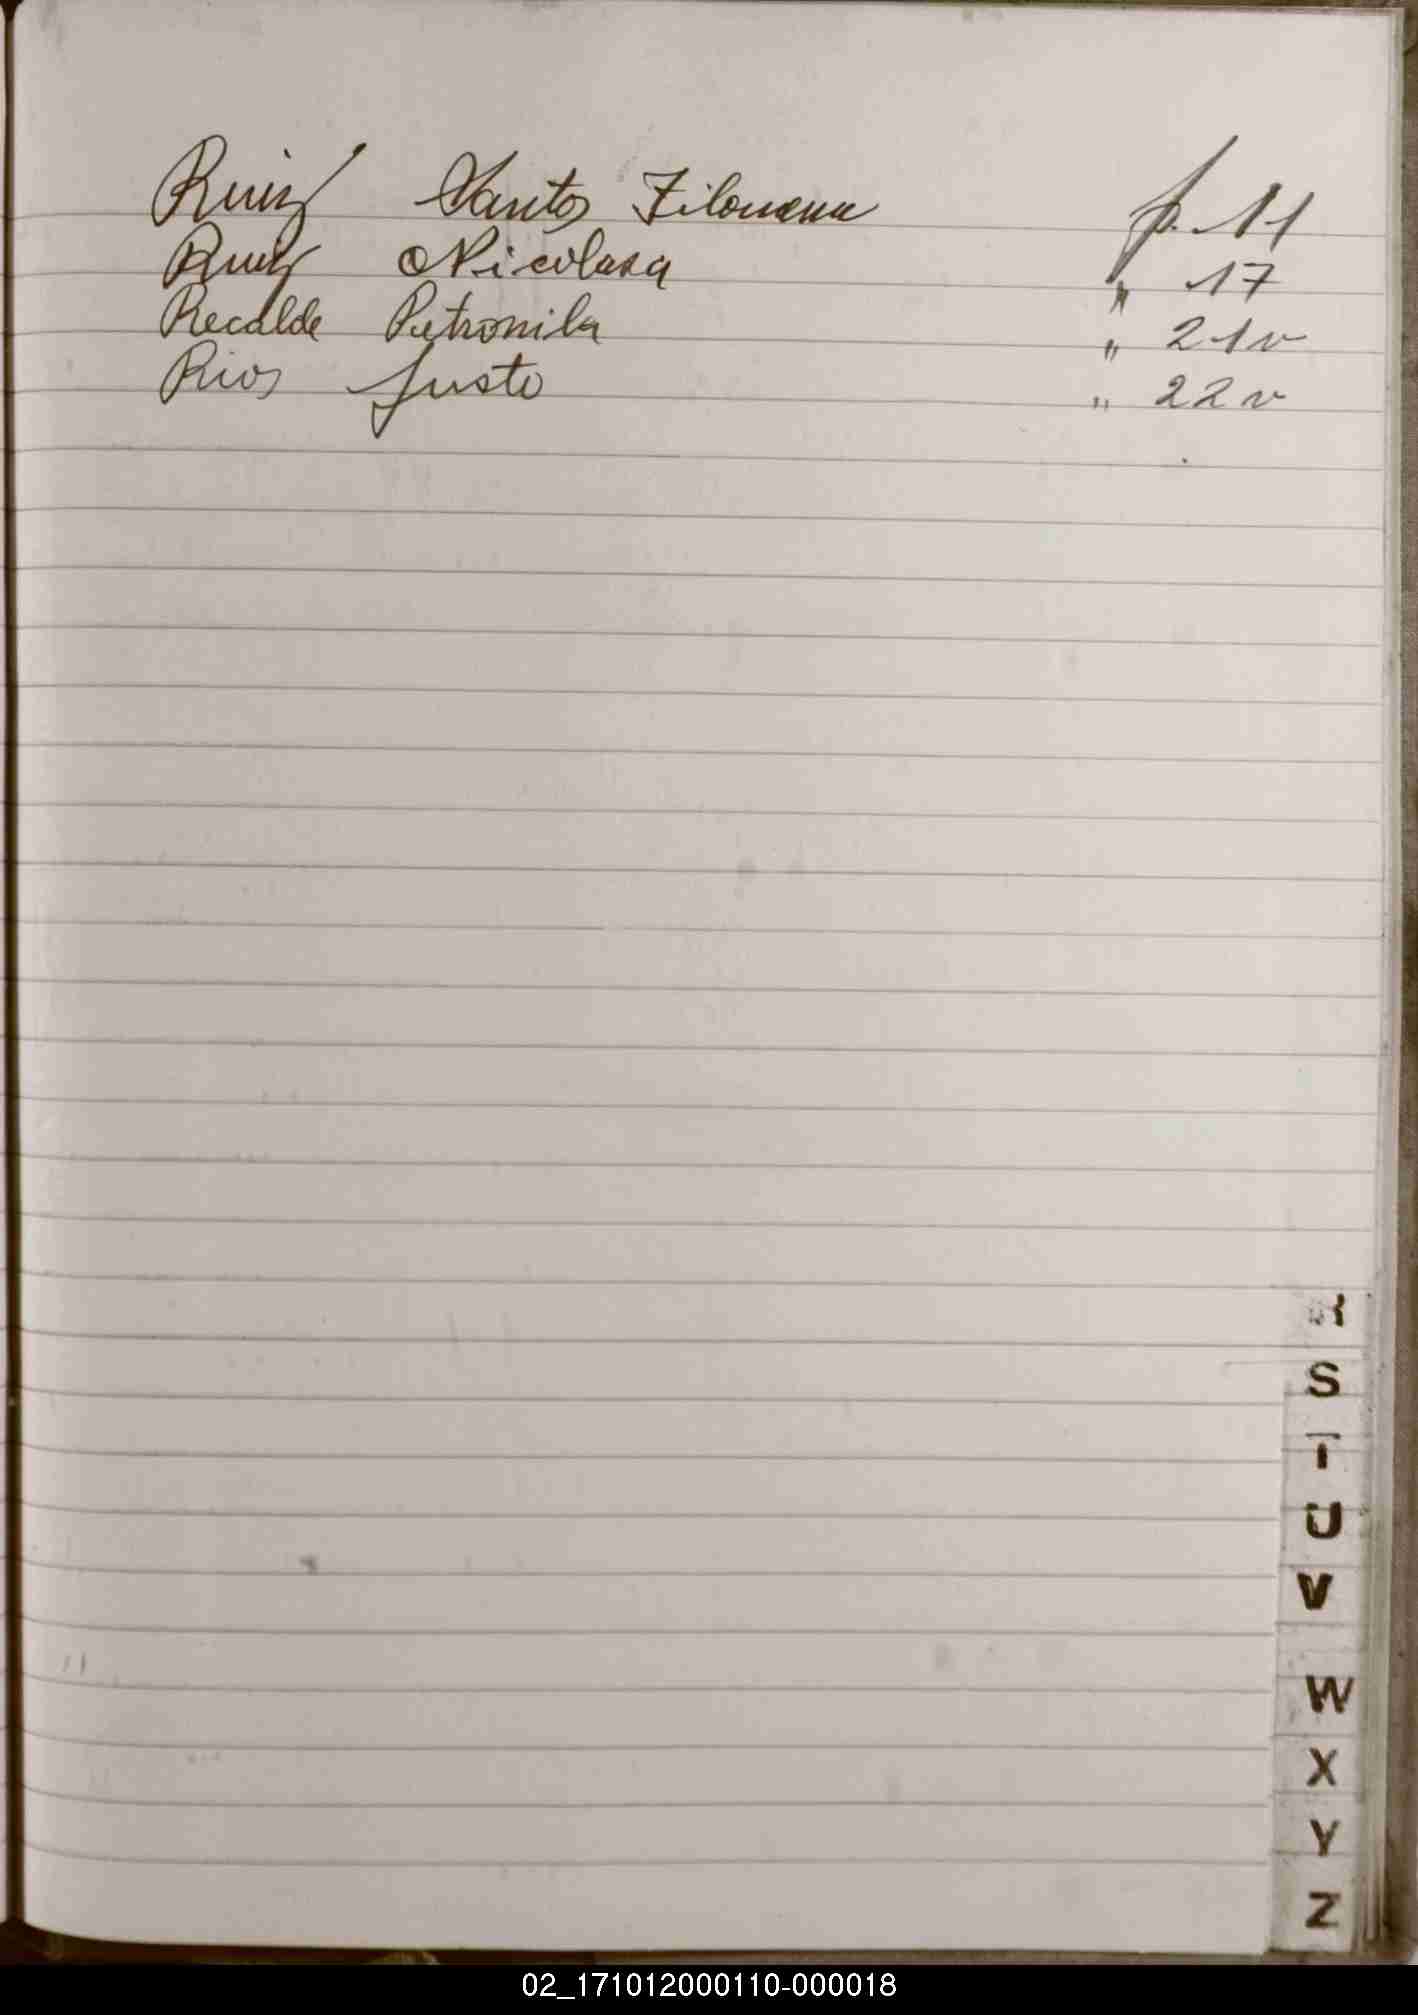 Ruiz Santos Filomena f. 11
Ruiz Nicolasa " 17
Recalde Petronila " 21v
Rios Justo " 22v
R
S
T
U
V
W
X
Y
Z
02_171012000110-000018